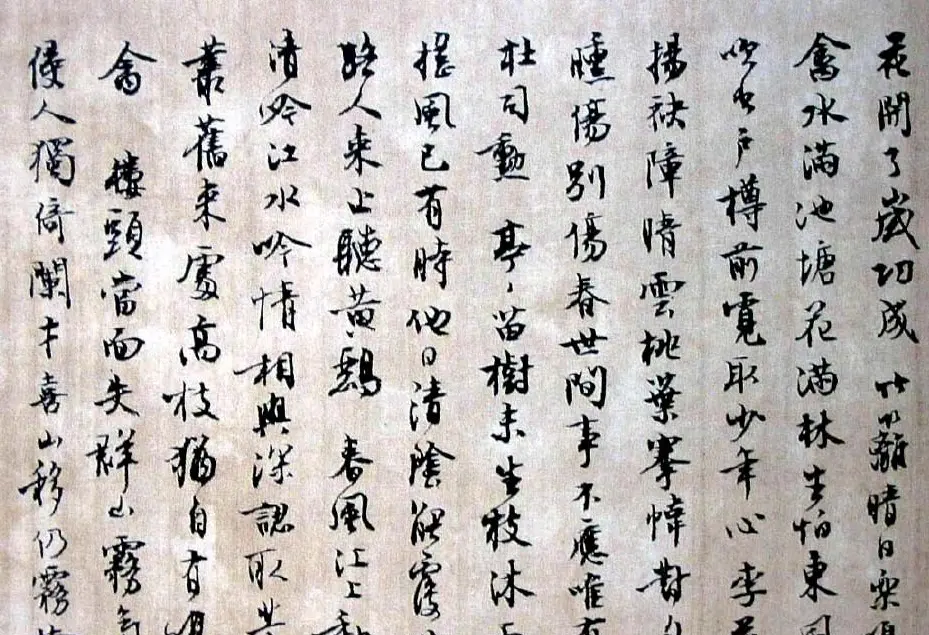 花開了歲功成 竹籬晴日
禽水滿池塘花滿林生怕東風
吹出戶樽前覓取少年心 李
揚袂障晴雲桃葉搴帷對
醺傷別傷春世間事不應唯有
杜司勳 亭〻苗樹未生枝沐
搖風已有時他日清陰能覆
路人來上聽黃鸝 春風江上
清吟江水吟情相與深認取
叢舊來處高枝猶自有鳴
禽 樓頭當面失群山霧
侵人獨倚闌才喜山移仍霧